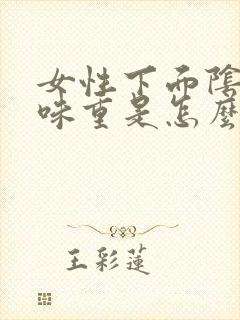 女性下面陰
味重是怎麼
王彩蓮